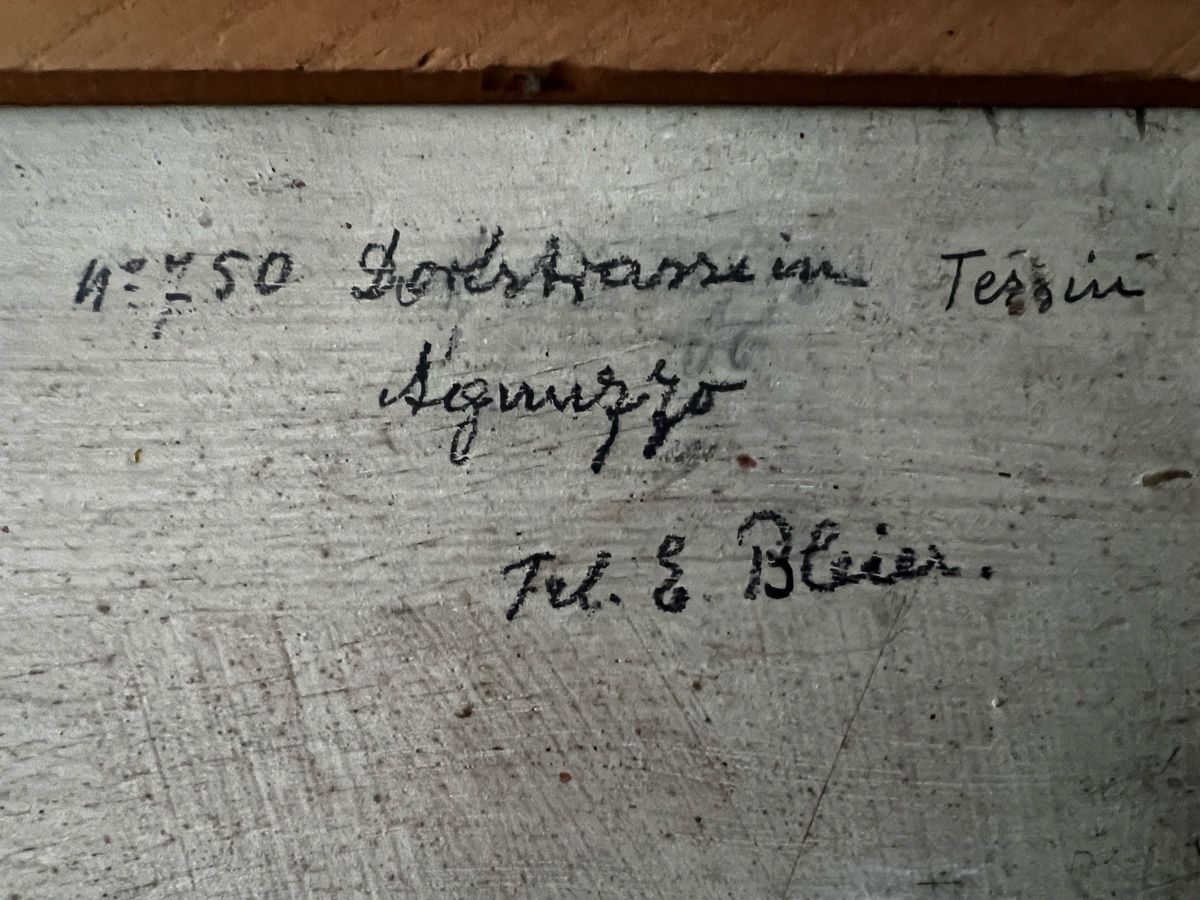 No 750 Dorfstrasse in Tessin
Agnuzzo
Frl. E. Bleier.